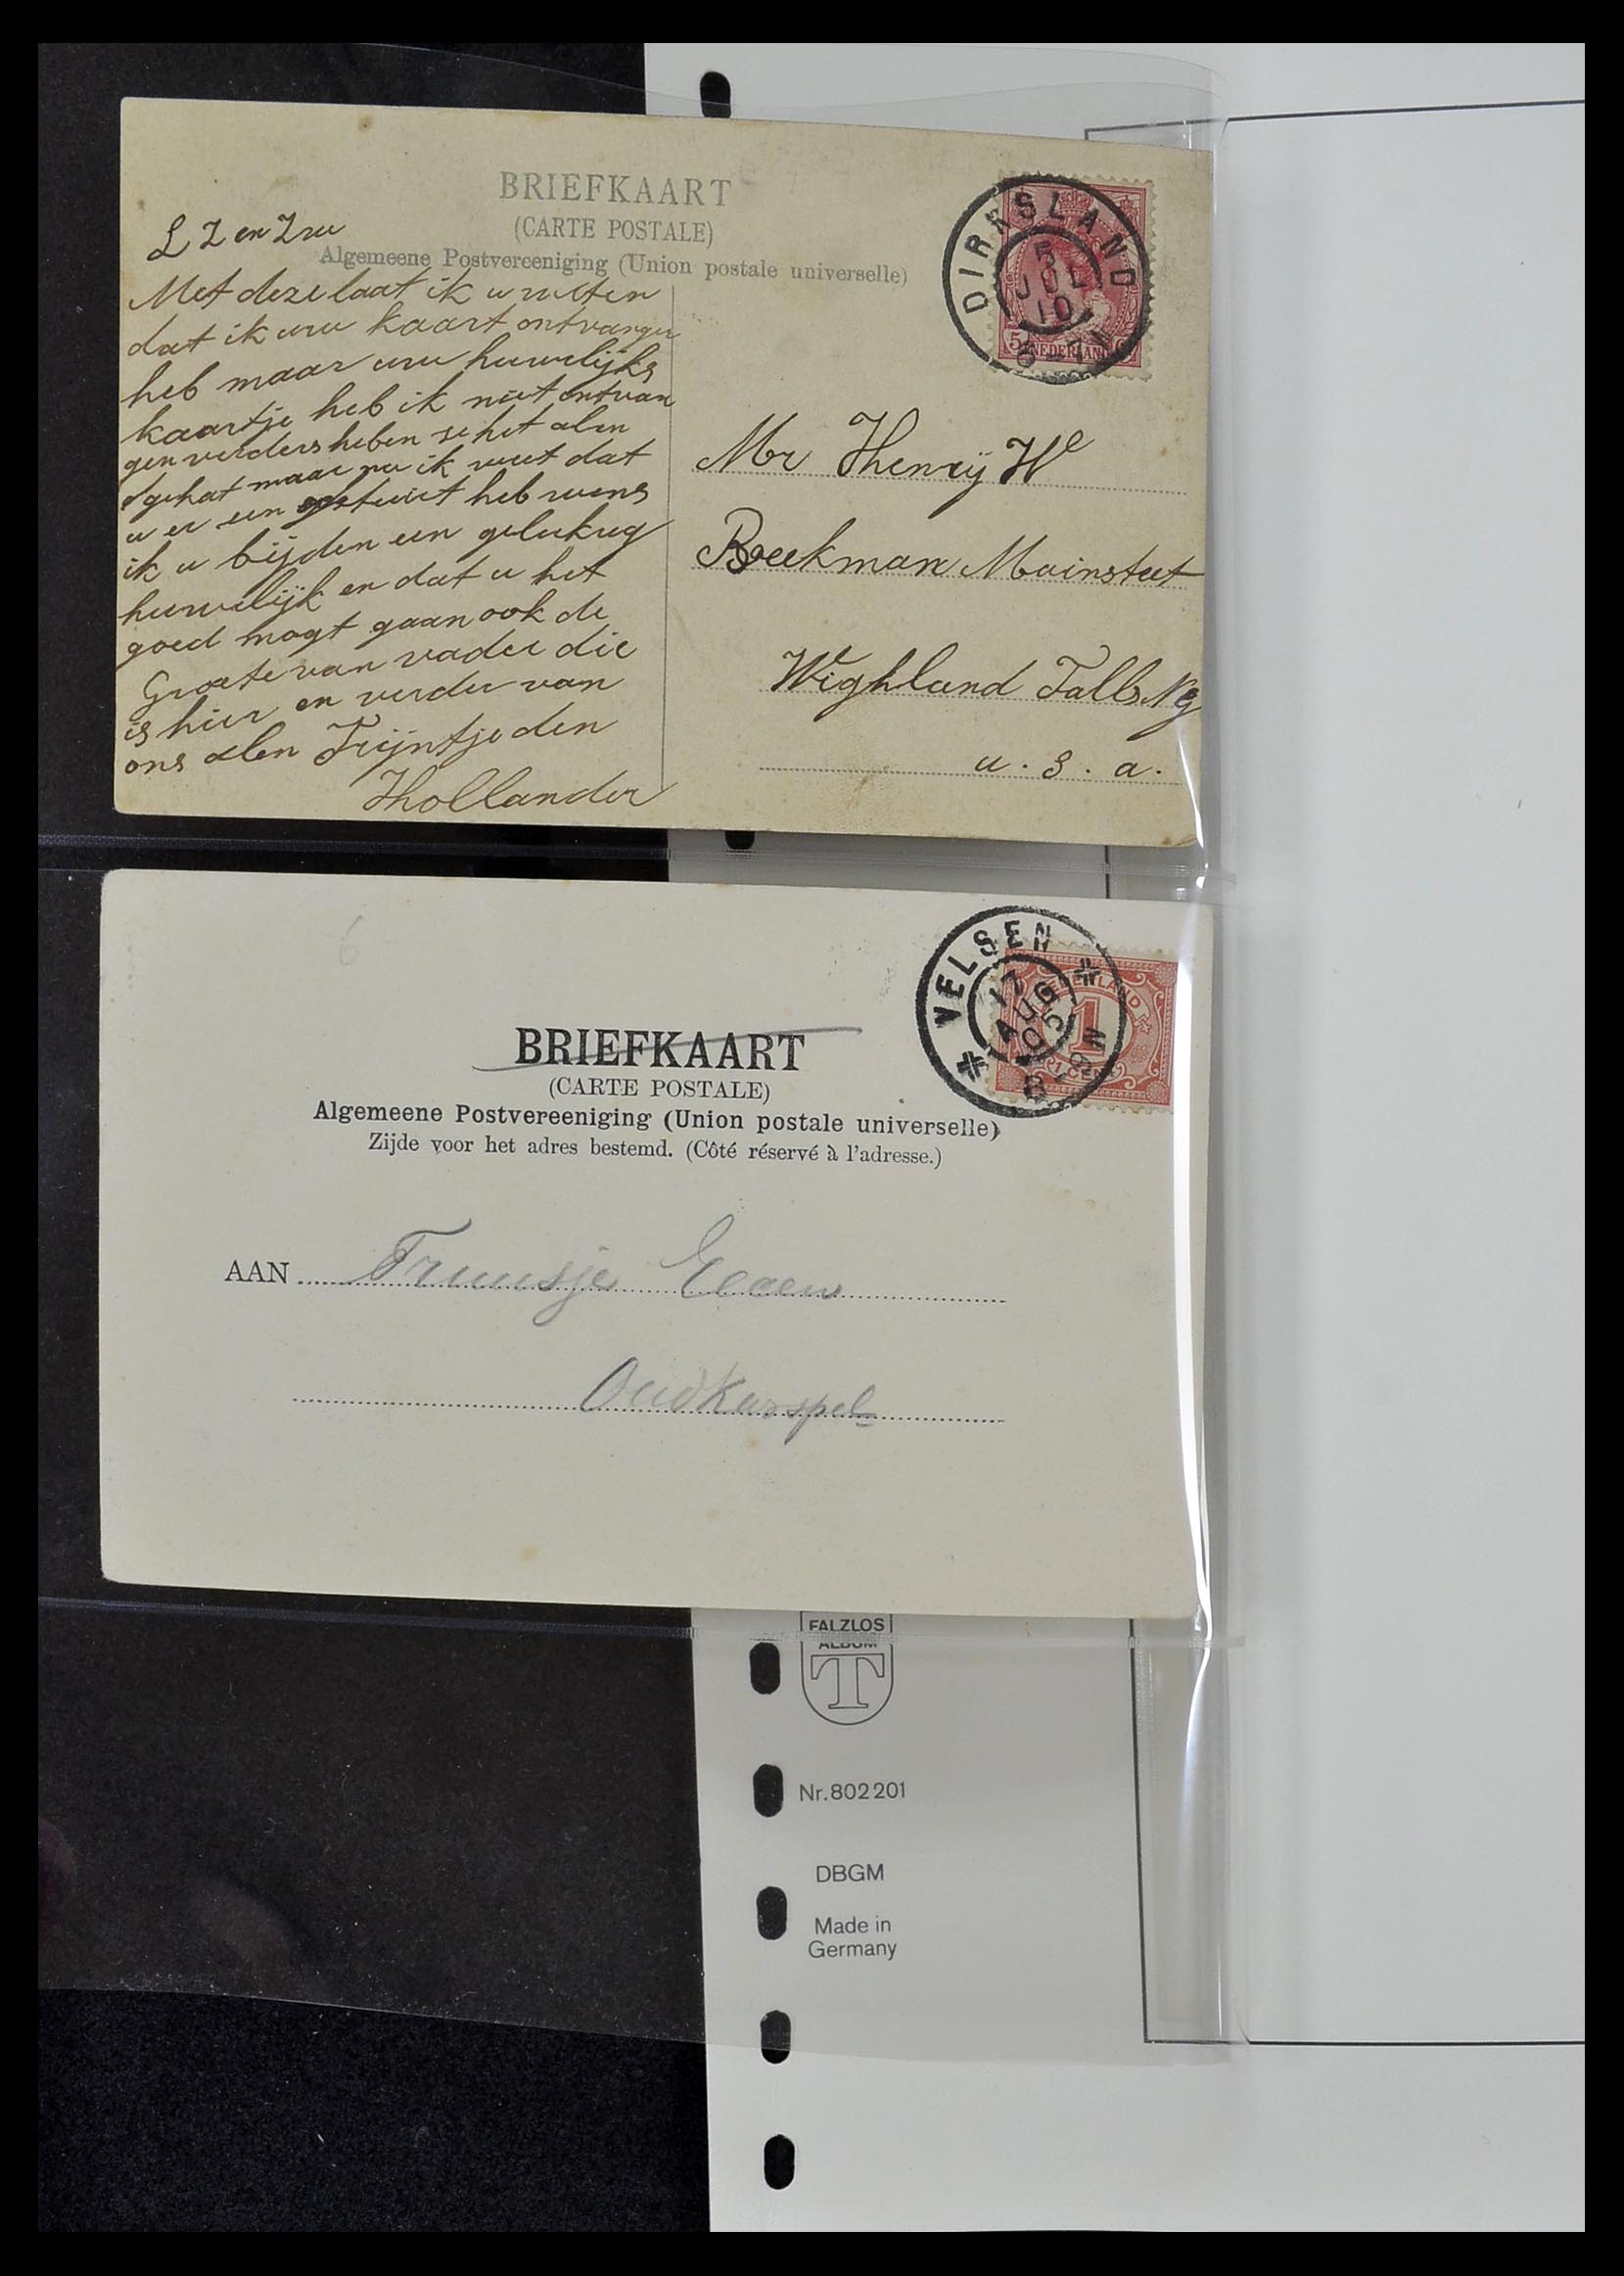 BRIEFKAART
(CARTE POSTALE)
Algemeene Postvereeniging (Union postale universelle)
L Z en Zw
Met deze laat ik u weten
dat ik uw kaart ontvangen
heb maar uw huwelijks
kaartje heb ik niet ontvan
gen verders heben se het alen
gehat maar nu ik weet dat
u er een gestuirt heb wens
ik u bijden een gelukug
huwelijk en dat u het
goed mogt gaan ook de
Groete van vader die
is hier en verder van
ons alen Trijntje den
Hollander
DIRKSLAND
5
JUL
10
5-7N
5 NEDERLAND
Mr Henrij W
Beekman Mainsteet
Highland Falls Ny
u. s. a.
6
VELSEN
17
AUG
05
NEDERLAND
1
1 CENT
BRIEFKAART
(CARTE POSTALE)
Algemeene Postvereeniging (Union postale universelle)
Zijde voor het adres bestemd. (Côté réservé à l'adresse.)
AAN Truusje
Oudkarspel
FALZLOS
ALBUM
T
Nr. 802 201
DBGM
Made in
Germany